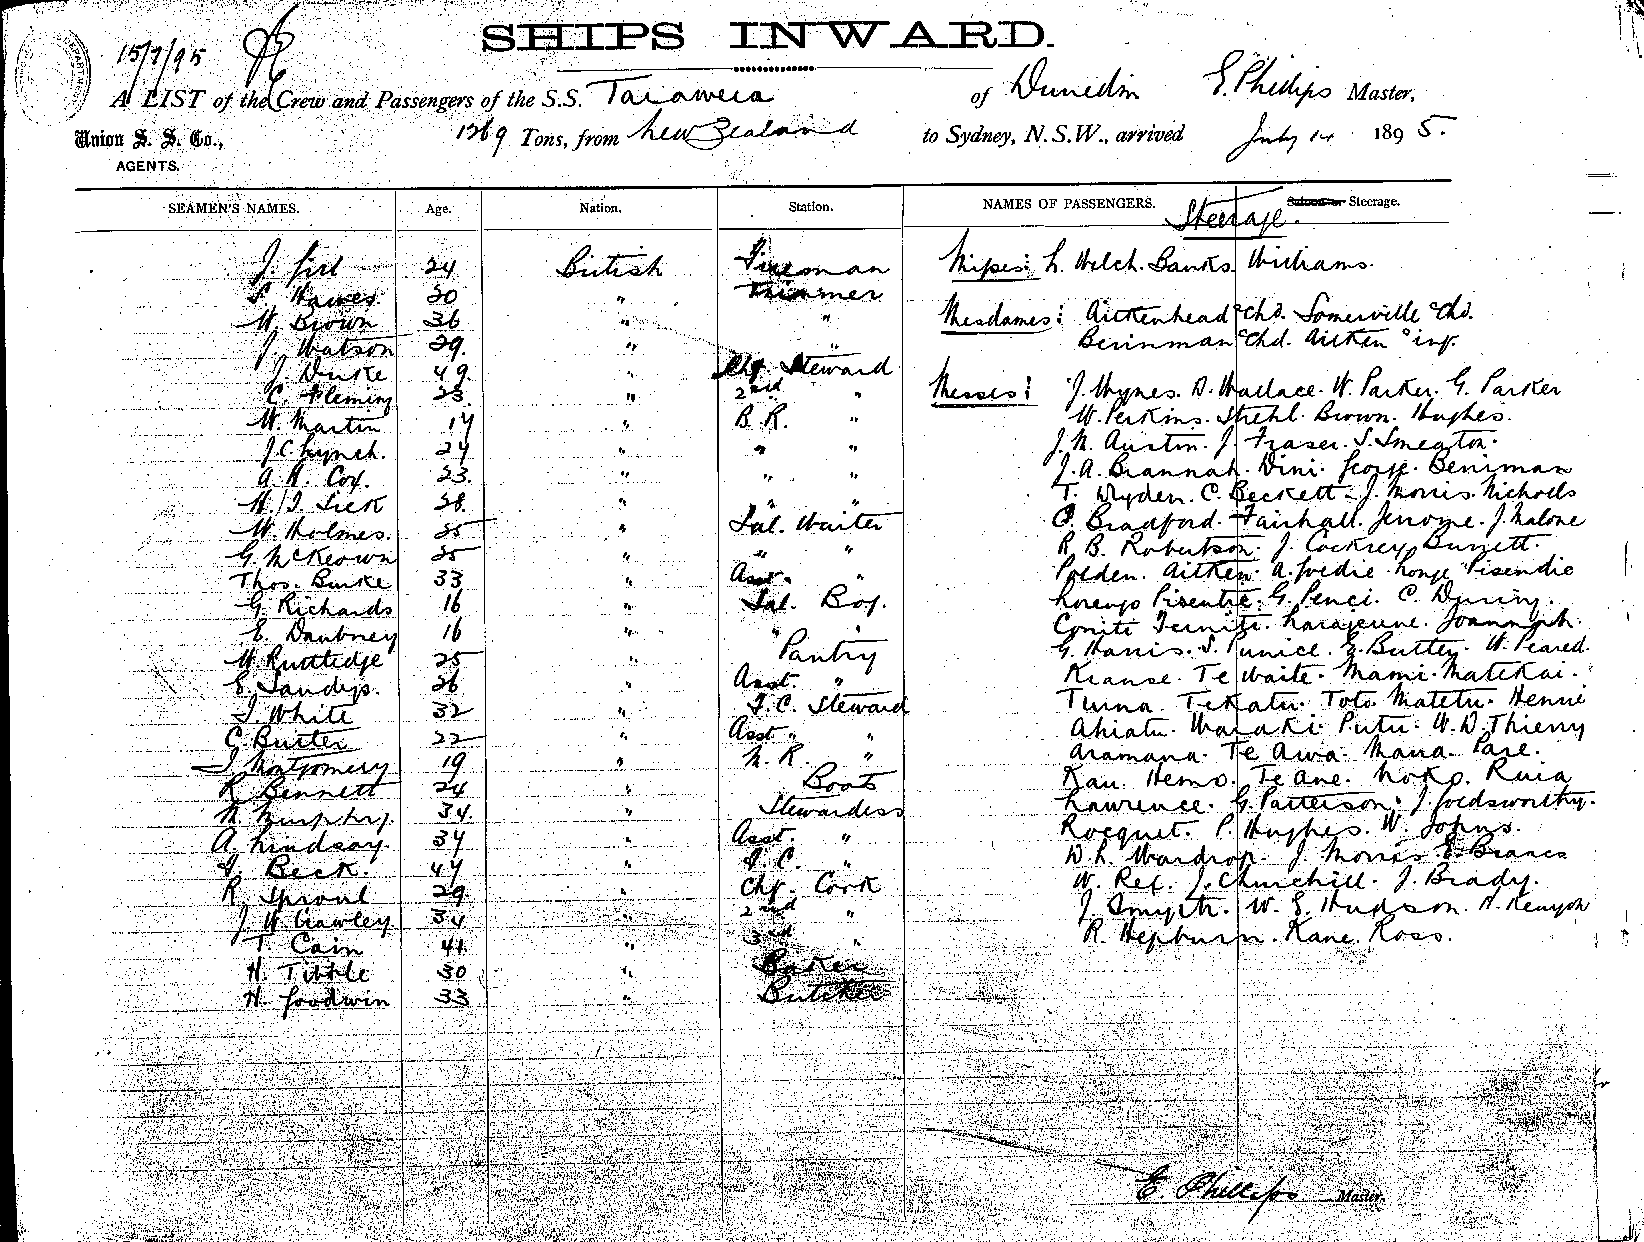 SHIPS INWARD.
15/7/95
A LIST of the Crew and Passengers of the S.S. Tarawera of Dunedin E. Phillips Master,
Union S. S. Co., 1269 Tons, from New Zealand to Sydney, N.S.W., arrived July 14 1895.
AGENTS.
SEAMEN'S NAMES. Age. Nation. Station. NAMES OF PASSENGERS. Steerage.
Steerage.
J. 24 British Fireman
S. Hawes 20 " Trimmer
W. Brown 36 " "
J. Watson 29. " "
J. Duke 49. " Chf. Steward
C. Fleming 23. " 2nd "
W. Martin 17 " B.R. "
J.C. Lynch. 24 " " "
A. H. Cox. 23. " " "
W. J. Sick 28. " " "
W. Holmes. 25 " Sal. Waiter
G. McKeown 25 " " "
Thos. Burke 33 " Asst. "
G. Richards 16 " Sal. Boy.
E. Daubney 16 " " "
W. Rutledge 25 " Pantry
E. Sandys. 26 " Asst. "
J. White 32 " F.C. Steward
C. Burter 22 " Asst " "
J. Montgomery 19 " N.R. "
R. Bennett 24 " Boots
M. Murphy. 34. " Stewardess
A. Lindsay. 34 " Asst. "
Beck. 47 " "
R. Sproul 29 " Chf. Cook
J. W. Crawley 34 " 2nd "
T. Cain 41 " 3rd "
H. Tibble 30 " Baker
H. Goodwin 33 " Butcher
Misses: L. Welch. Banks. Williams.
Mesdames: Aitkenhead & Chd. Somerville & Chd.
Berriman & Chd. Aitken & inf.
Messrs: J. Hynes. D. Wallace. W. Parker. G. Parker
W. Perkins. Strehl. Brown. Hughes.
J. N. Austin. J. Fraser. S. Smeaton.
J. A. Brannah. Vini. George. Berriman
T. Dryden. C. Beckett. J. Morris. Nicholls
C. Bradford. Fairhall. Jerome. J. Malone
R. B. Robertson. J. Cockrey. Burnett.
Polden. Aitken. A. Goldie.
Lorenzo G. Penci. C.
G. Harris. S. Eunice. E. Buttey. W. Peared.
Krause. Te Waite. Mami. Matekai.
Turna. Tekatu. Toto. Matetu. Hennie
Ahiatu. Waraki. Putu. W. D. Thierry
Aramana. Te Awa. Mana. Pare.
Rau. Hemo. Te Ane. Ruia
Lawrence. G. Patterson. J. Goldsworthy.
Rocquet. P. Hughes. W. Johns.
D. L. Wardrop. J. Morris.
W. J. Churchill. J. Brady.
J. Smyth. W. E. Hudson. Kenyon
R. Hepburn. Kane. Ross.
E. Phillips Master.